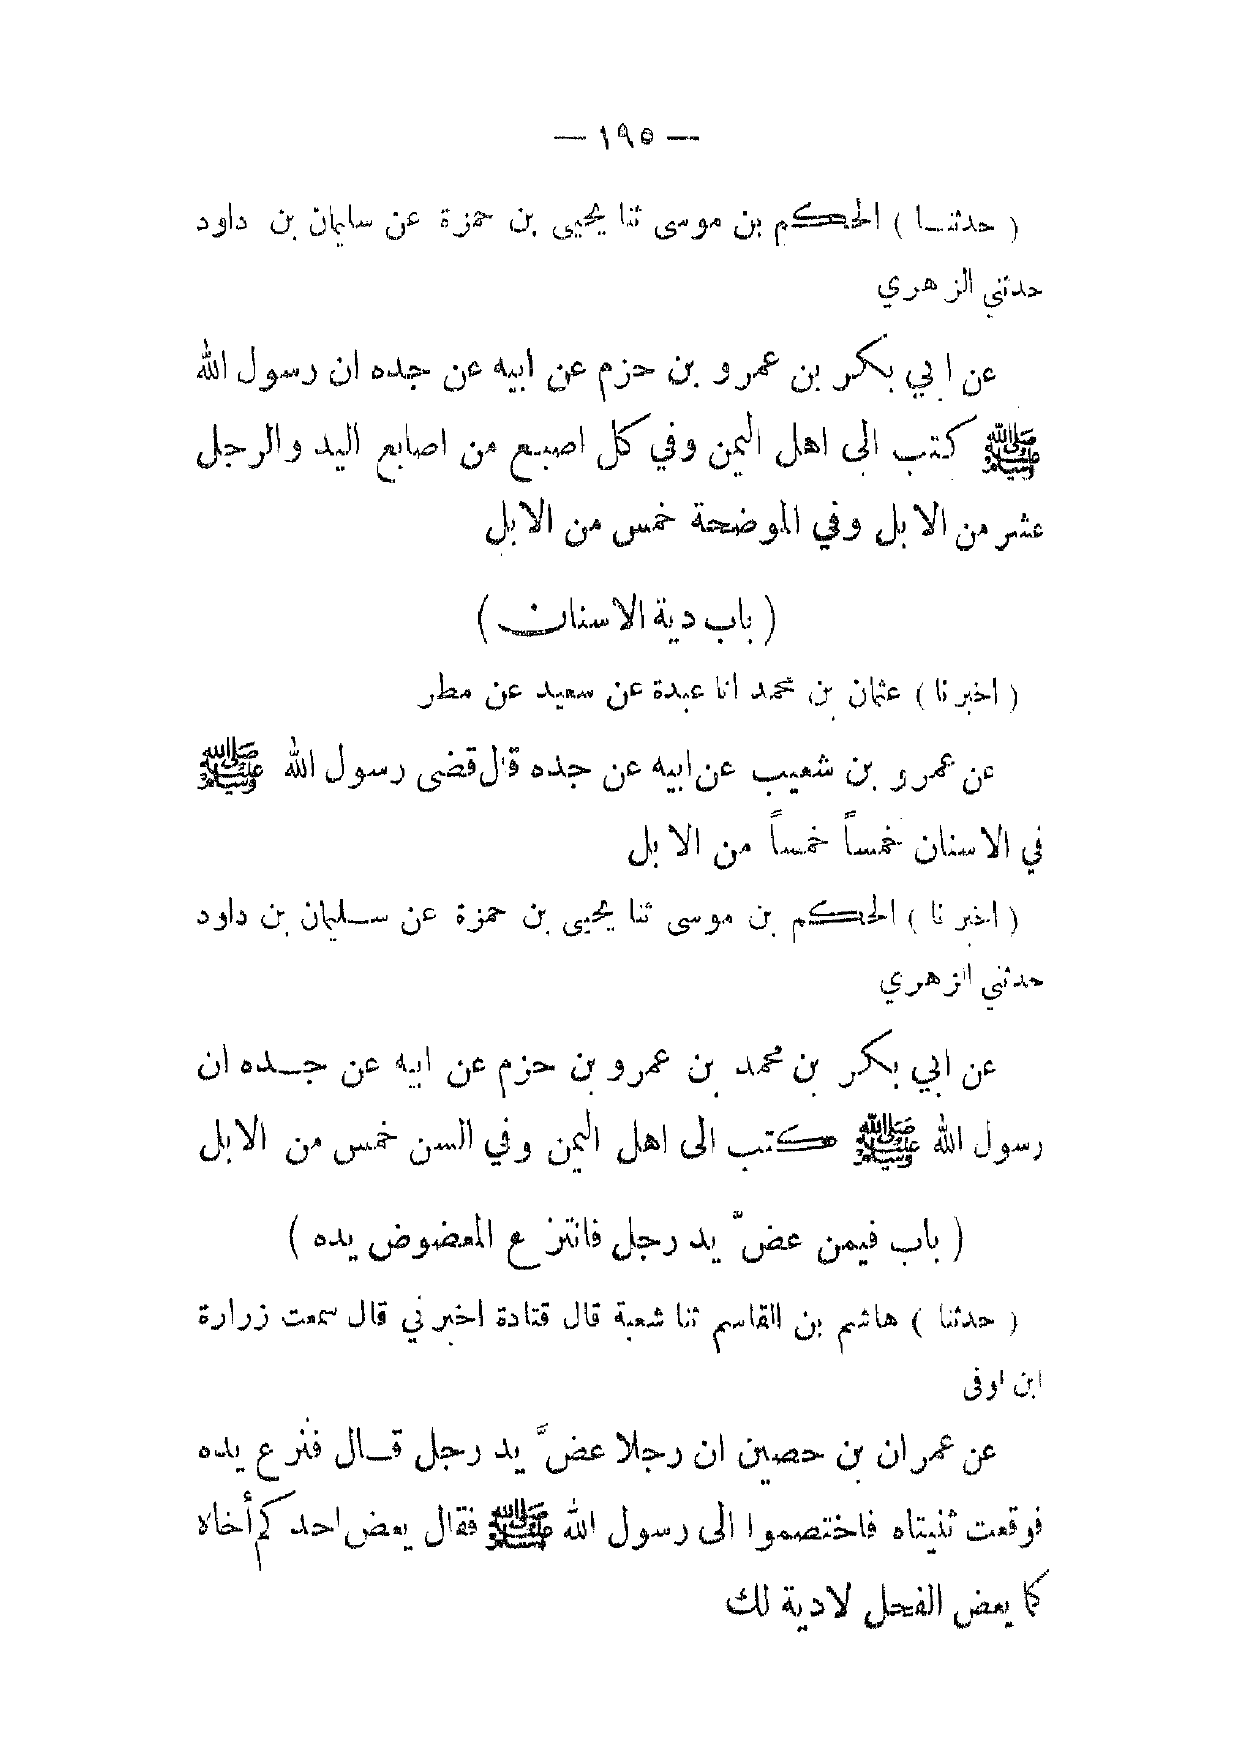 — ١٩٥ —
( حدثنـا ) الحكم بن موسى ثنا يحيى بن حمزة عن سليمان بن داود
حدثني الزهري
عن ابي بكر بن عمرو بن حزم عن ابيه عن جده ان رسول الله
ﷺ كتب الى اهل اليمن وفي كل اصبع من اصابع اليد والرجل
عشر من الابل وفي الموضحة خمس من الابل
( باب دية الاسنان )
( اخبرنا ) عثمان بن محمد انا عبدة عن سعيد عن مطر
عن عمرو بن شعيب عن ابيه عن جده قال قضى رسول الله ﷺ
في الاسنان خمساً خمساً من الابل
( اخبرنا ) الحكم بن موسى ثنا يحيى بن حمزة عن سليمان بن داود
حدثني الزهري
عن ابي بكر بن محمد بن عمرو بن حزم عن ابيه عن جـده ان
رسول الله ﷺ كتب الى اهل اليمن وفي السن خمس من الابل
( باب فيمن عضّ يد رجل فانتزع المعضوض يده )
( حدثنا ) هاشم بن القاسم ثنا شعبة قال قتادة اخبرني قال سمعت زرارة
ابن اوفى
عن عمران بن حصين ان رجلا عضَّ يد رجل قـال فنزع يده
فوقعت ثنيتاه فاختصموا الى رسول الله ﷺ فقال يعض احدكم أخاه
كما يعض الفحل لادية لك